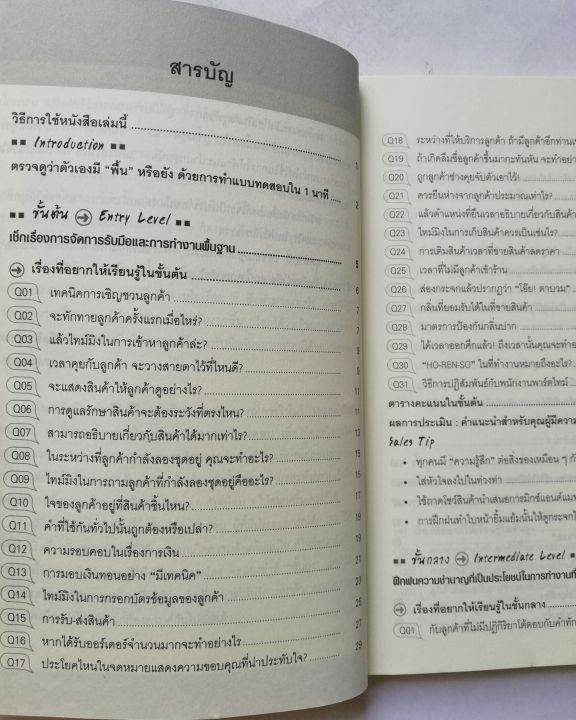 สารบัญ
วิธีการใช้หนังสือเล่มนี้ 1
Introduction
ตรวจดูว่าตัวเองมี "พื้น" หรือยัง ด้วยการทำแบบทดสอบใน 1 นาที 2
ขั้นต้น Entry Level
เช็กเรื่องการจัดการรับมือและการทำงานพื้นฐาน 5
เรื่องที่อยากให้เรียนรู้ในขั้นต้น 6
Q01 เทคนิคการเชิญชวนลูกค้า 7
Q02 จะทักทายลูกค้าครั้งแรกเมื่อไหร่? 7
Q03 แล้วไทม์มิงในการเข้าหาลูกค้าล่ะ? 9
Q04 เวลาคุยกับลูกค้า จะวางสายตาไว้ที่ไหนดี? 9
Q05 จะแสดงสินค้าให้ลูกค้าดูอย่างไร? 11
Q06 การดูแลรักษาสินค้าจะต้องระวังที่ตรงไหน? 11
Q07 สามารถอธิบายเกี่ยวกับสินค้าได้มากเท่าไร? 13
Q08 ในระหว่างที่ลูกค้ากำลังลองชุดอยู่ คุณจะทำอะไร? 15
Q09 ไทม์มิงในการถามลูกค้าที่กำลังลองชุดอยู่คืออะไร? 15
Q10 ใจของลูกค้าอยู่ที่สินค้าชิ้นไหน? 17
Q11 คำที่ใช้กันทั่วไปนั้นถูกต้องหรือเปล่า? 19
Q12 ความรอบคอบในเรื่องการเงิน 19
Q13 การมอบเงินทอนอย่าง "มีเทคนิค" 21
Q14 ไทม์มิงในการกรอกบัตรข้อมูลของลูกค้า 23
Q15 การรับ-ส่งสินค้า 25
Q16 หากได้รับออร์เดอร์จำนวนมากจะทำอย่างไร 27
Q17 ประโยคไหนในจดหมายแสดงความขอบคุณที่น่าประทับใจ? 29
Q18 ระหว่างที่ให้บริการลูกค้า ถ้ามีลูกค้าอีกท่าน
Q19 ถ้าเกิดลืมชื่อลูกค้าขึ้นมากะทันหัน จะทำอย่าง
Q20 ถูกลูกค้าช่างคุยจับตัวเอาไว้!
Q21 ควรยืนห่างจากลูกค้าประมาณเท่าไร?
Q22 แล้วตำแหน่งที่ยืนเวลาอธิบายเกี่ยวกับสินค้า
Q23 ไทม์มิงในการเก็บสินค้าควรเป็นเช่นไร?
Q24 การเติมสินค้าเวลาที่ขายสินค้าลดราคา
Q25 เวลาที่ไม่มีลูกค้าเข้าร้าน
Q26 ส่องกระจกแล้วปรากฏว่า "โอ๊ย! ตาบวม"
Q27 กลิ่นที่ยอมรับได้ในที่ขายสินค้า
Q28 มาตรการป้องกันกลิ่นปาก
Q29 ได้เวลาออกศึกแล้ว! ถึงเวลานั้นคุณจะทำ
Q30 "HO-REN-SO" ในที่ทำงานหมายถึงอะไร?
Q31 วิธีการปฏิสัมพันธ์กับพนักงานพาร์ตไทม์
ตารางคะแนนในขั้นต้น
ผลการประเมิน : คำแนะนำสำหรับคุณผู้มีความ
Sales Tip
• ทุกคนมี "ความรู้สึก" ต่อสิ่งของเหมือน ๆ
• ใส่หัวใจลงไปในท่วงท่า
• ใช้ถาดโชว์สินค้านำเสนอการมิกซ์แอนด์แม
• การฝึกฝนทำใบหน้ายิ้มแย้มนั้นให้ดูกระจก
ขั้นกลาง Intermediate Level
ฝึกฝนความชำนาญที่เป็นประโยชน์ในการทำงาน
เรื่องที่อยากให้เรียนรู้ในขั้นกลาง
Q01 กับลูกค้าที่ไม่มีปฏิกิริยาโต้ตอบกับคำทัก